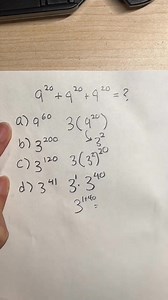 9²⁰ + 9²⁰ + 9²⁰ = ?
a) 9⁶⁰ 3(9²⁰)
↳ 3²
b) 3²⁰⁰
c) 3¹²⁰ 3(3²)²⁰
d) 3⁴¹ 3¹ · 3⁴⁰
3¹⁺⁴⁰ =